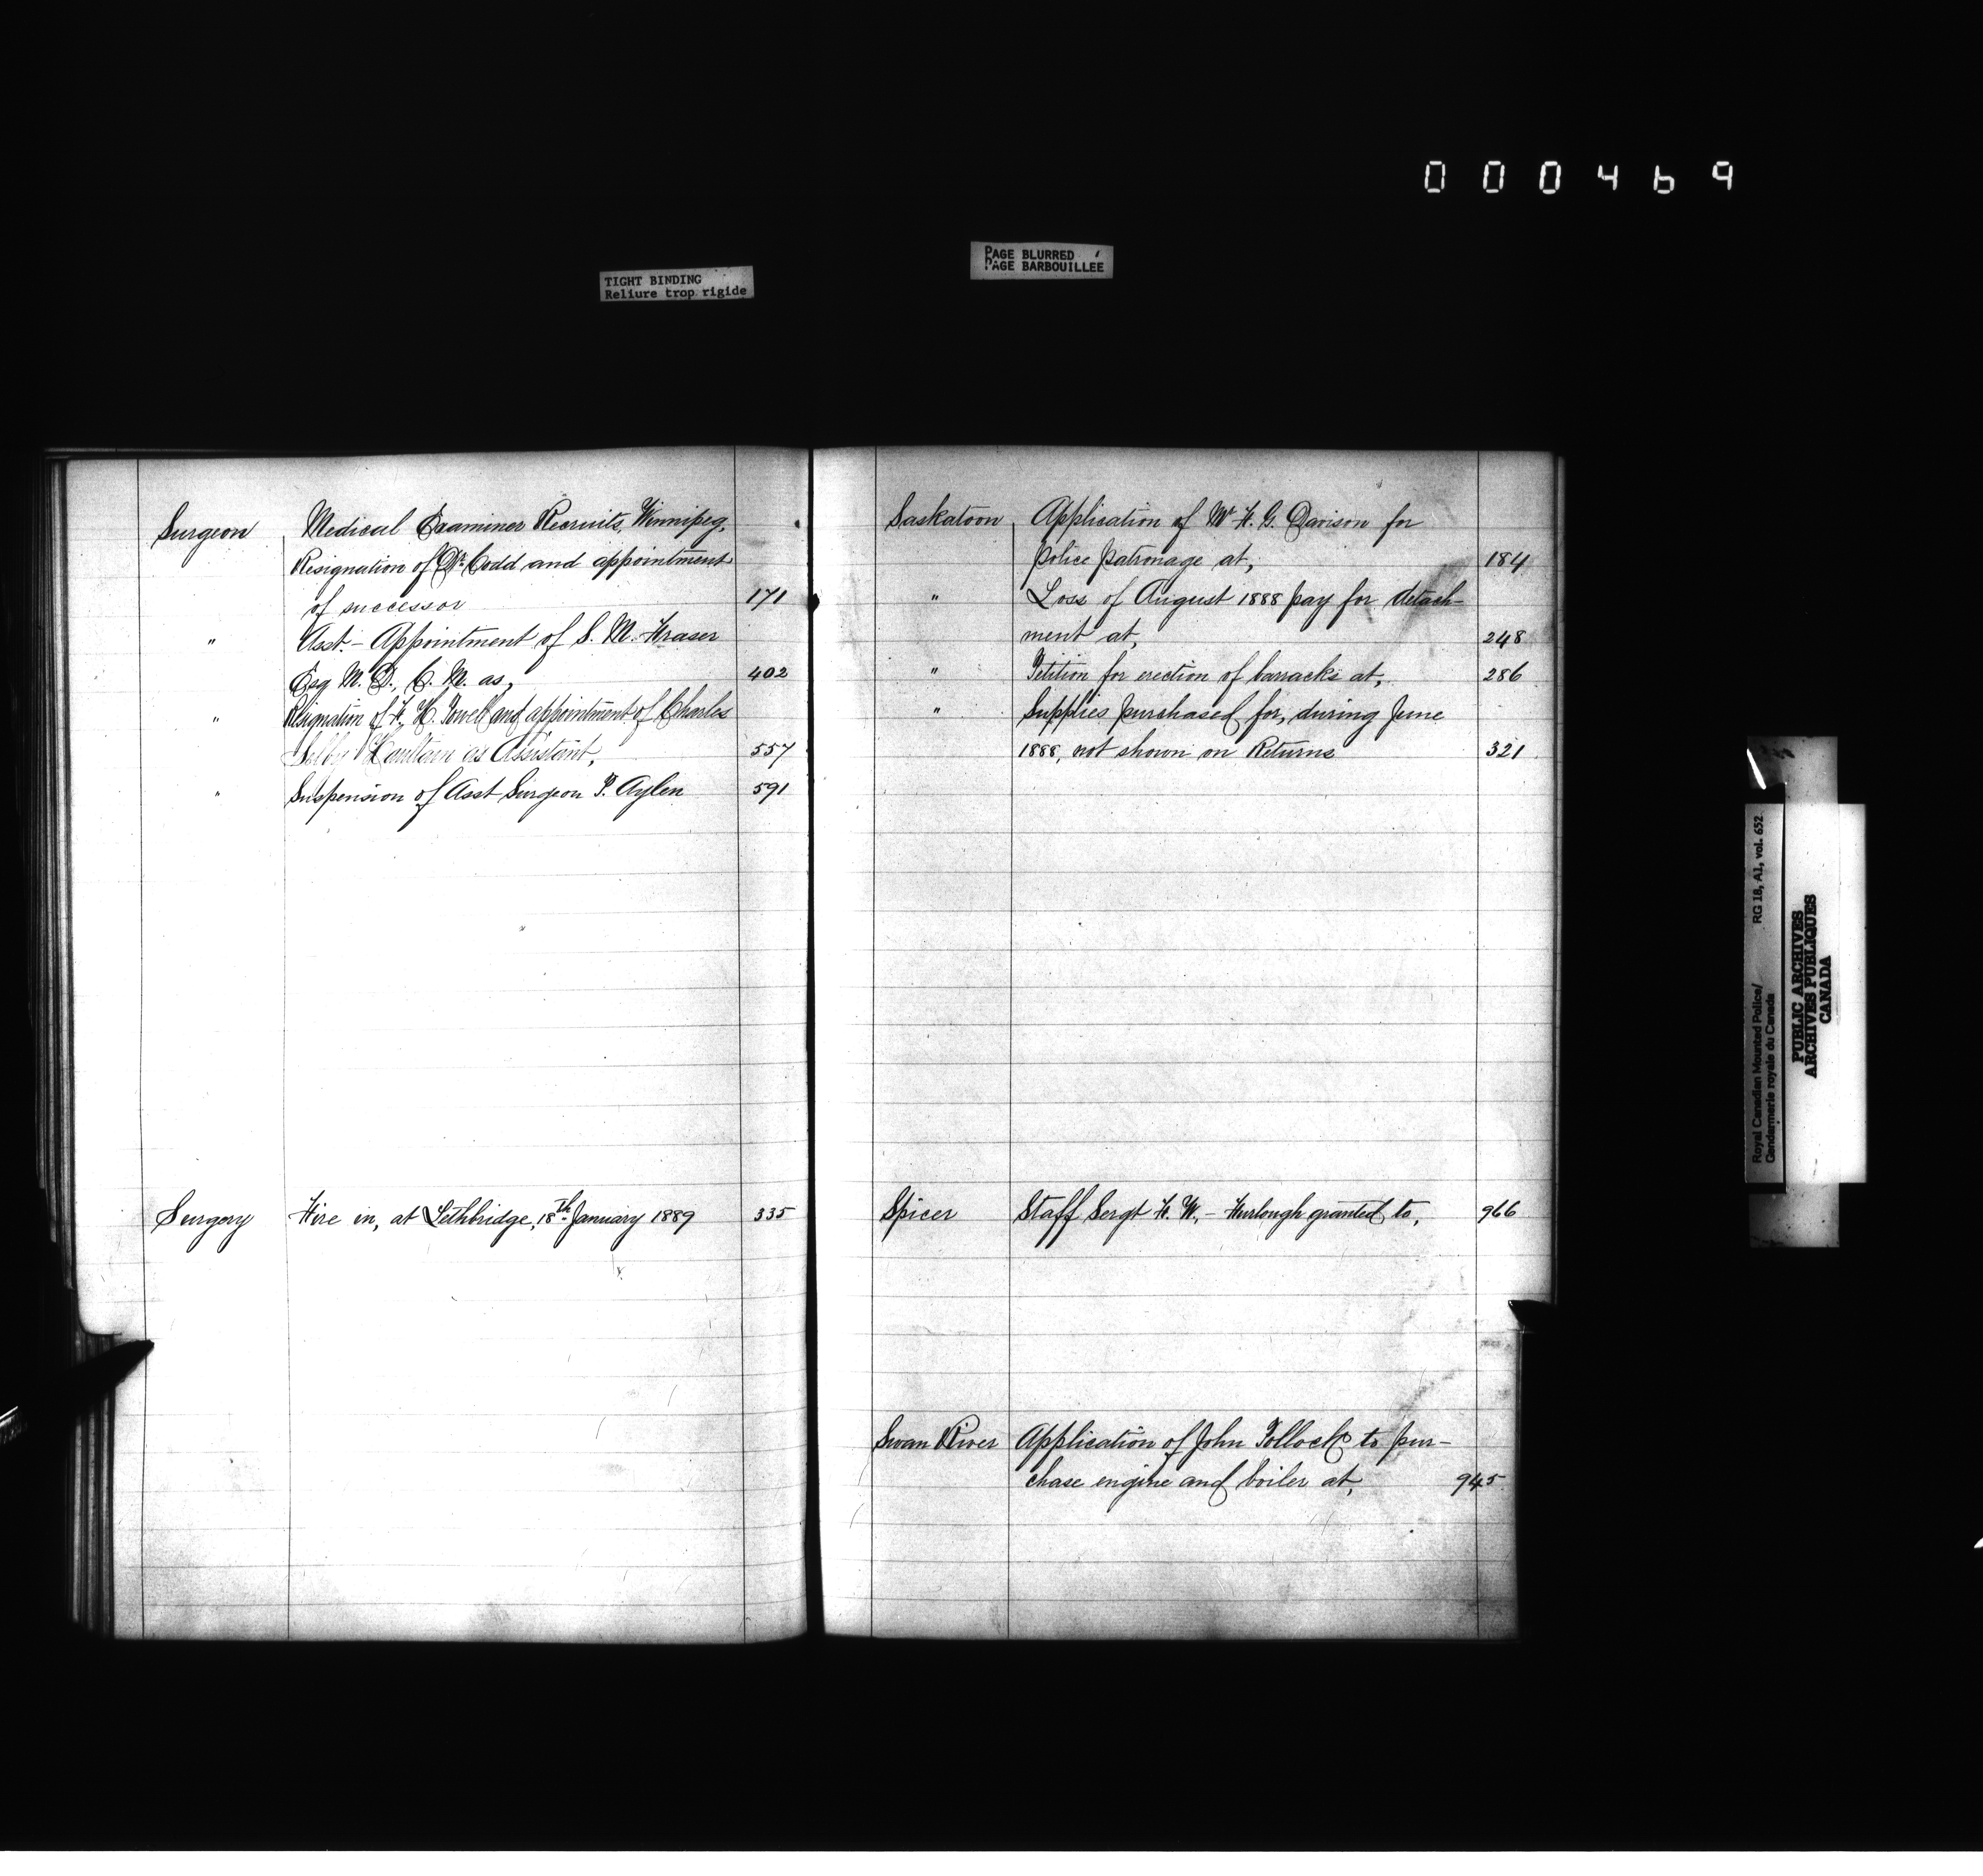 000469
TIGHT BINDING
Reliure trop rigide
PAGE BLURRED
PAGE BARBOUILLÉE
Surgeon Medical Examiner Recruits, Winnipeg,
Resignation of Dr. Codd and appointment
of successor 171
" Asst. - Appointment of S. M. Fraser
Esq M. D., C. M. as, 402
" Resignation of F. H. Powell and appointment of Charles
Selby Haultain as Assistant, 557
" Suspension of Asst Surgeon P. Aylen 591
Surgery Fire in, at Lethbridge, 18th January 1889 335
Saskatoon, Application of Mr F. G. Davison for
police patronage at, 184
" Loss of August 1888 pay for detach-
ment at, 248
" Petition for erection of barracks at, 286
" Supplies purchased for, during June
1888, not shown on Returns 321
Spicer Staff Sergt F. W. - Furlough granted to, 966
Swan River Application of John Pollock to pur-
chase engine and boiler at, 945
Royal Canadian Mounted Police/ RG 18, A1, vol. 652
Gendarmerie royale du Canada
PUBLIC ARCHIVES
ARCHIVES PUBLIQUES
CANADA